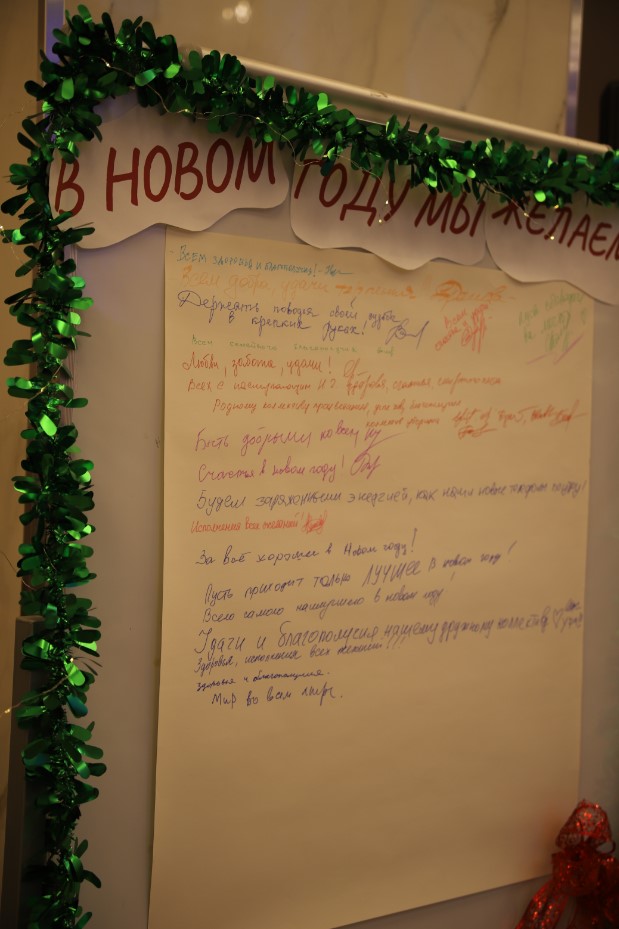 В НОВОМ ГОДУ МЫ ЖЕЛАЕМ
Всем здоровья и благополучия!
Всем добра, удачи
Держать поводья своей судьбы
в крепких руках!
Всем семейного благополучия
Любви, заботы, удачи!
Всех с наступающим НГ здоровья, счастья,
Родному коллективу процветания,
Быть добрыми ко всем
Счастья в новом году!
Будем заряженными энергией, как наши новые
Исполнения всех желаний!
За всё хорошее в Новом году!
Пусть приходит только ЛУЧШЕЕ в новом году!
Всего самого наилучшего в новом году!
Удачи и благополучия нашему дружному коллективу
Здоровья, исполнения всех желаний!!!
Здоровья и благополучия.
Мир во всем мире.